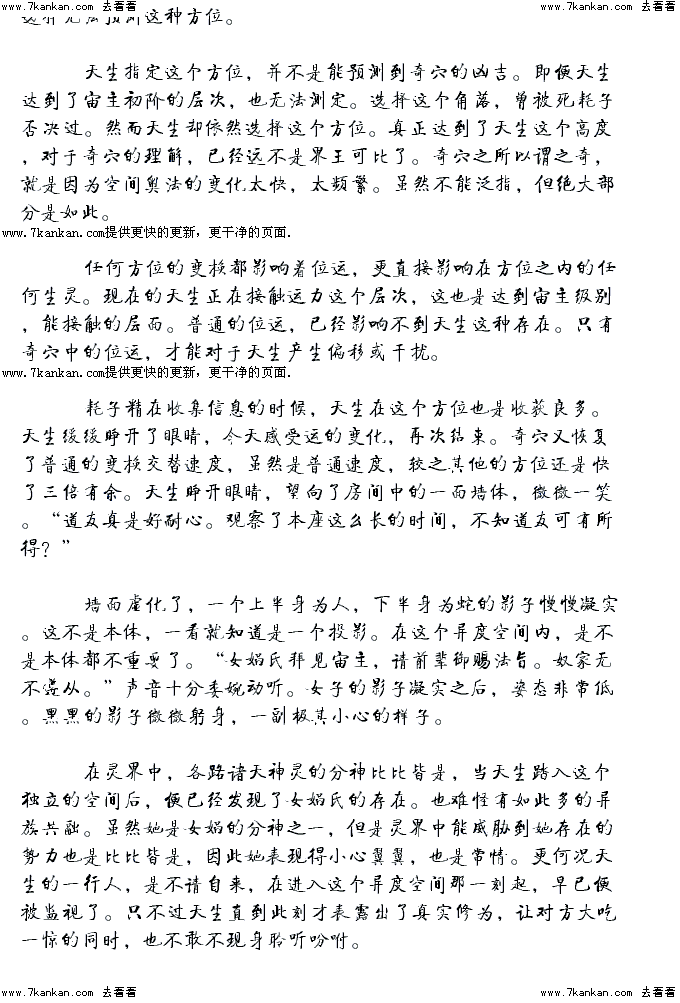 www.7kankan.com 去看看 www.7kankan.com 去看看
这种方位。
天生指定这个方位，并不是能预测到奇穴的凶吉。即便天生
达到了宙主初阶的层次，也无法测定。选择这个角落，曾被死耗子
否决过。然而天生却依然选择这个方位。真正达到了天生这个高度
，对于奇穴的理解，已经远不是界王可比了。奇穴之所以谓之奇，
就是因为空间奥法的变化太快，太频繁。虽然不能泛指，但绝大部
分是如此。
www.7kankan.com提供更快的更新，更干净的页面.
任何方位的变换都影响着位运，更直接影响在方位之内的任
何生灵。现在的天生正在接触运力这个层次，这也是达到宙主级别
，能接触的层面。普通的位运，已经影响不到天生这种存在。只有
奇穴中的位运，才能对于天生产生偏移或干扰。
www.7kankan.com提供更快的更新，更干净的页面.
耗子精在收集信息的时候，天生在这个方位也是收获良多。
天生缓缓睁开了眼睛，今天感受运的变化，再次结束。奇穴又恢复
了普通的变换交替速度，虽然是普通速度，较之其他的方位还是快
了三倍有余。天生睁开眼睛，望向了房间中的一面墙体，微微一笑
。“道友真是好耐心。观察了本座这么长的时间，不知道友可有所
得？”
墙面虚化了，一个上半身为人，下半身为蛇的影子慢慢凝实
。这不是本体，一看就知道是一个投影。在这个异度空间内，是不
是本体都不重要了。“女娲氏拜见宙主，请前辈御赐法旨。奴家无
不遵从。”声音十分委婉动听。女子的影子凝实之后，姿态非常低
。黑黑的影子微微躬身，一副极其小心的样子。
在灵界中，各路诸天神灵的分神比比皆是，当天生踏入这个
独立的空间后，便已经发现了女娲氏的存在。也难怪有如此多的异
族共融。虽然她是女娲的分神之一，但是灵界中能威胁到她存在的
势力也是比比皆是，因此她表现得小心翼翼，也是常情。更何况天
生的一行人，是不请自来，在进入这个异度空间那一刻起，早已便
被监视了。只不过天生直到此刻才表露出了真实修为，让对方大吃
一惊的同时，也不敢不现身聆听吩咐。
www.7kankan.com 去看看 www.7kankan.com 去看看